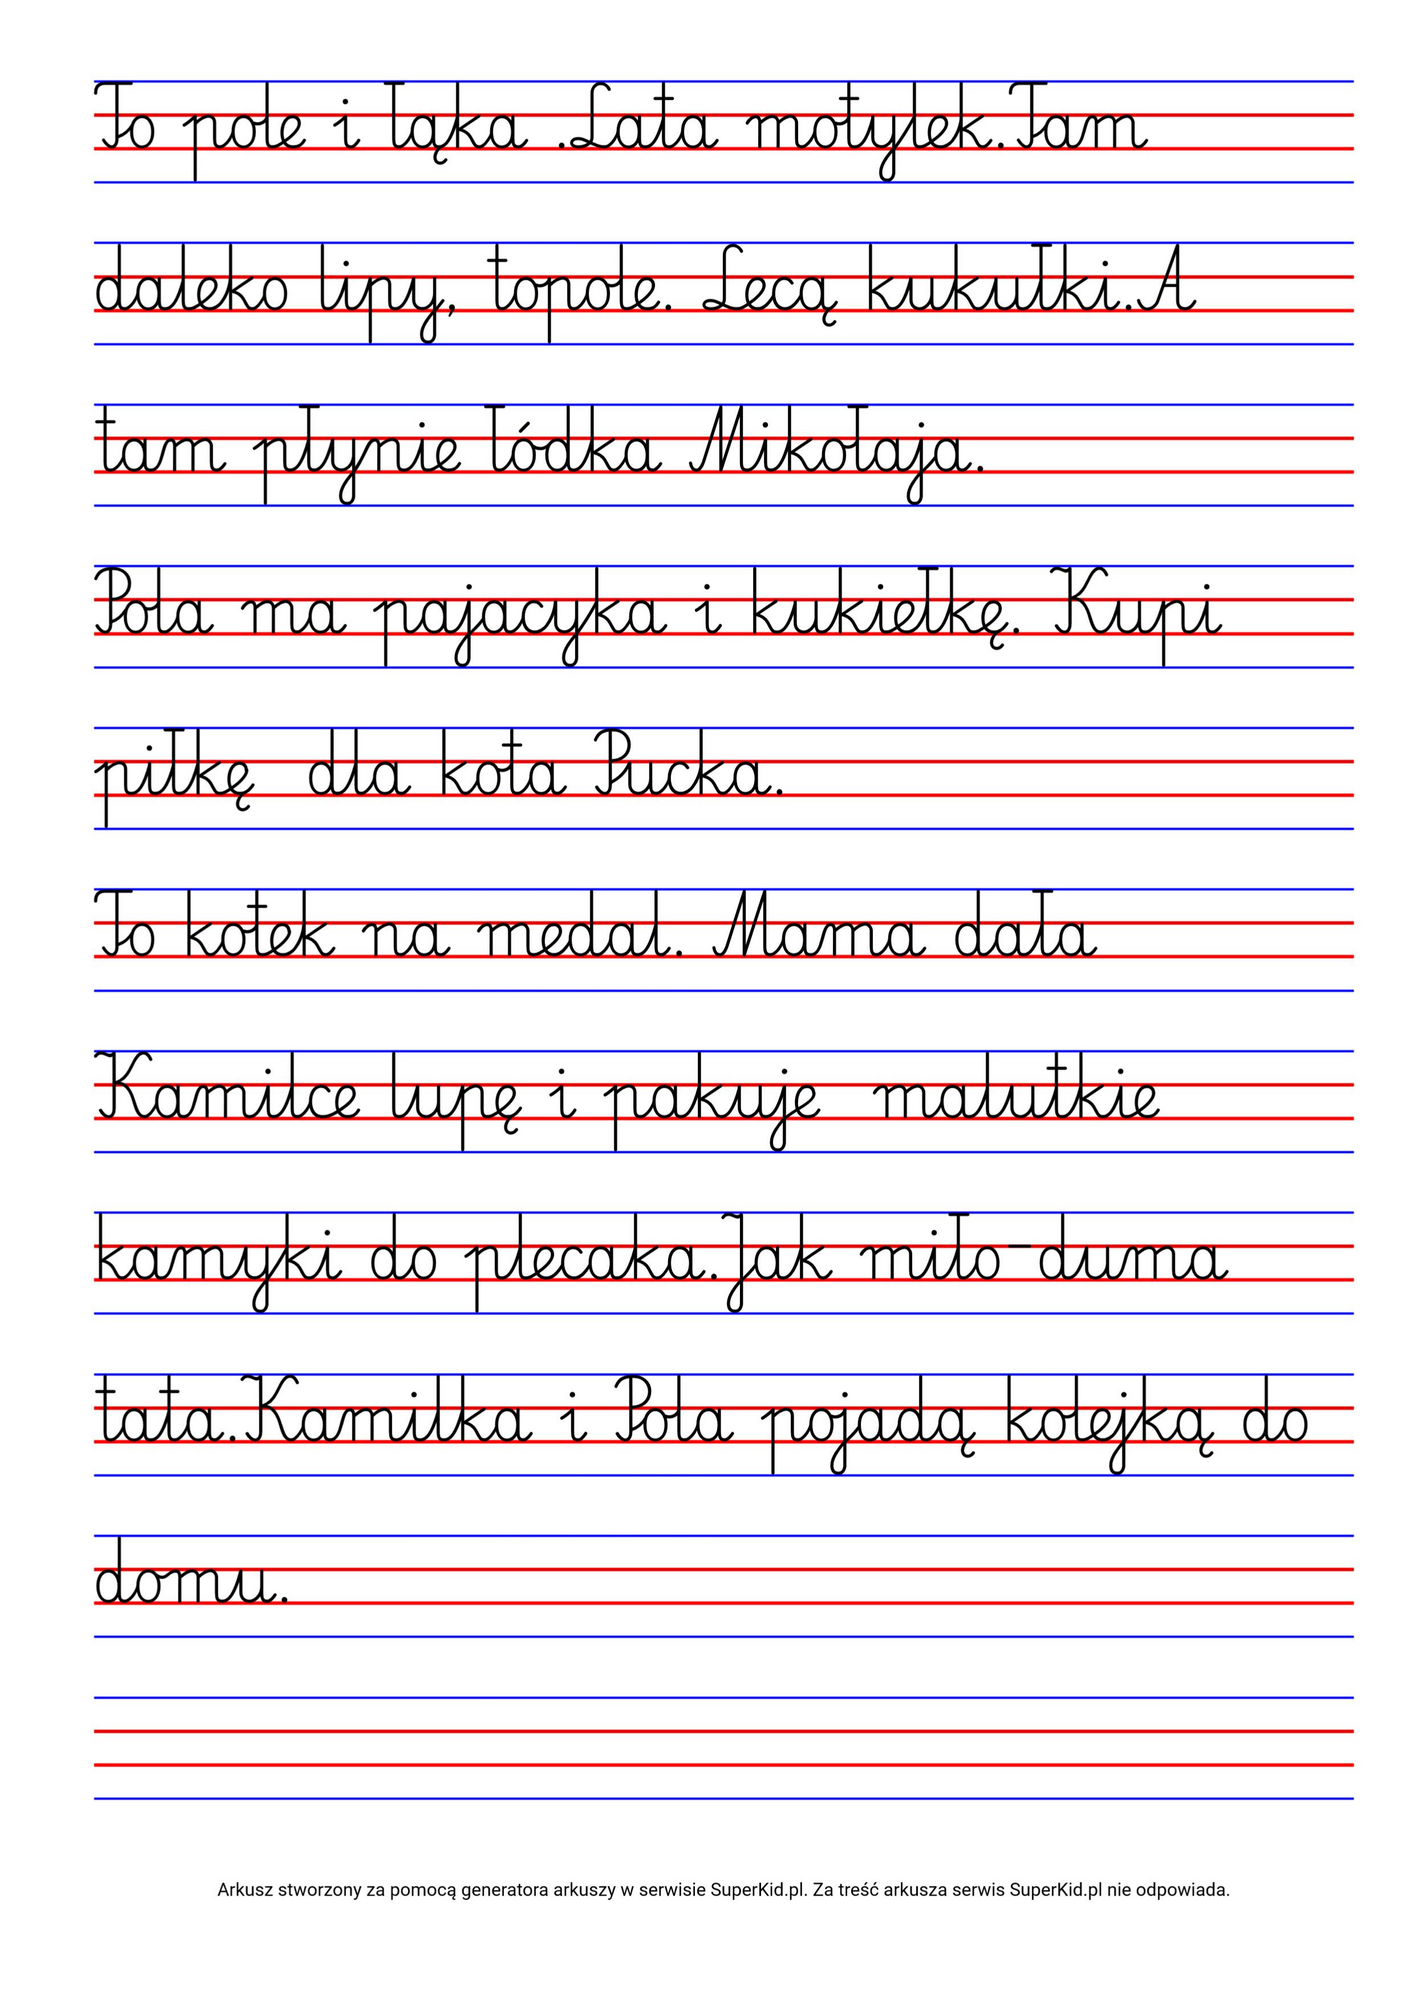 To pole i łąka .Lata motylek.Tam
daleko lipy, topole. Lecą kukułki.A
tam płynie łódka Mikołaja.
Pola ma pajacyka i kukiełkę. Kupi
piłkę dla kota Pucka.
To kotek na medal. Mama dała
Kamilce lupę i pakuje malutkie
kamyki do plecaka.Jak miło-duma
tata.Kamilka i Pola pojadą kolejką do
domu.
Arkusz stworzony za pomocą generatora arkuszy w serwisie SuperKid.pl. Za treść arkusza serwis SuperKid.pl nie odpowiada.